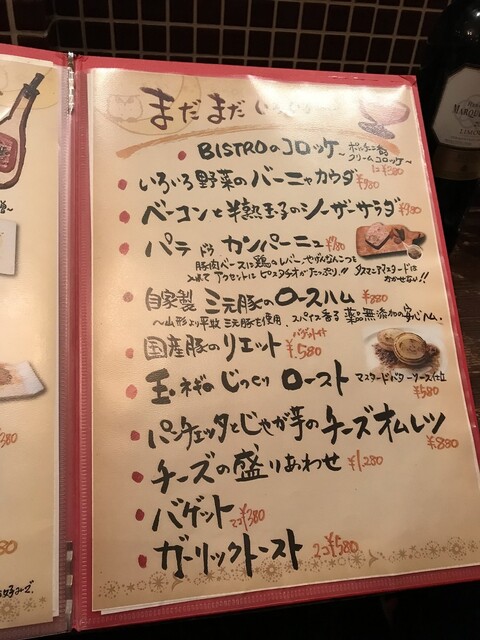 まだまだ
BISTROのコロッケ ～ポルチーニ香るクリームコロッケ～
いろいろ野菜のバーニャカウダ ¥980
ベーコンと半熟玉子のシーザーサラダ ¥980
パテ ドゥ カンパーニュ ¥780
豚肉ベースに鶏のレバー、やげんなんこつを
入れて アクセントに ピスタチオがたっぷり!!
おかせない!!
自家製 三元豚のロースハム ¥880
～山形より平牧三元豚を使用、スパイス香る 薬品無添加の安心ハム。
国産豚のリエット バゲット付 ¥580
玉ネギの じっくり ロースト マスタードバターソース仕立 ¥580
パンチェッタとじゃが芋のチーズオムレツ ¥880
チーズの盛りあわせ ¥1,280
バゲット 4コ¥380
ガーリックトースト 2コ¥580